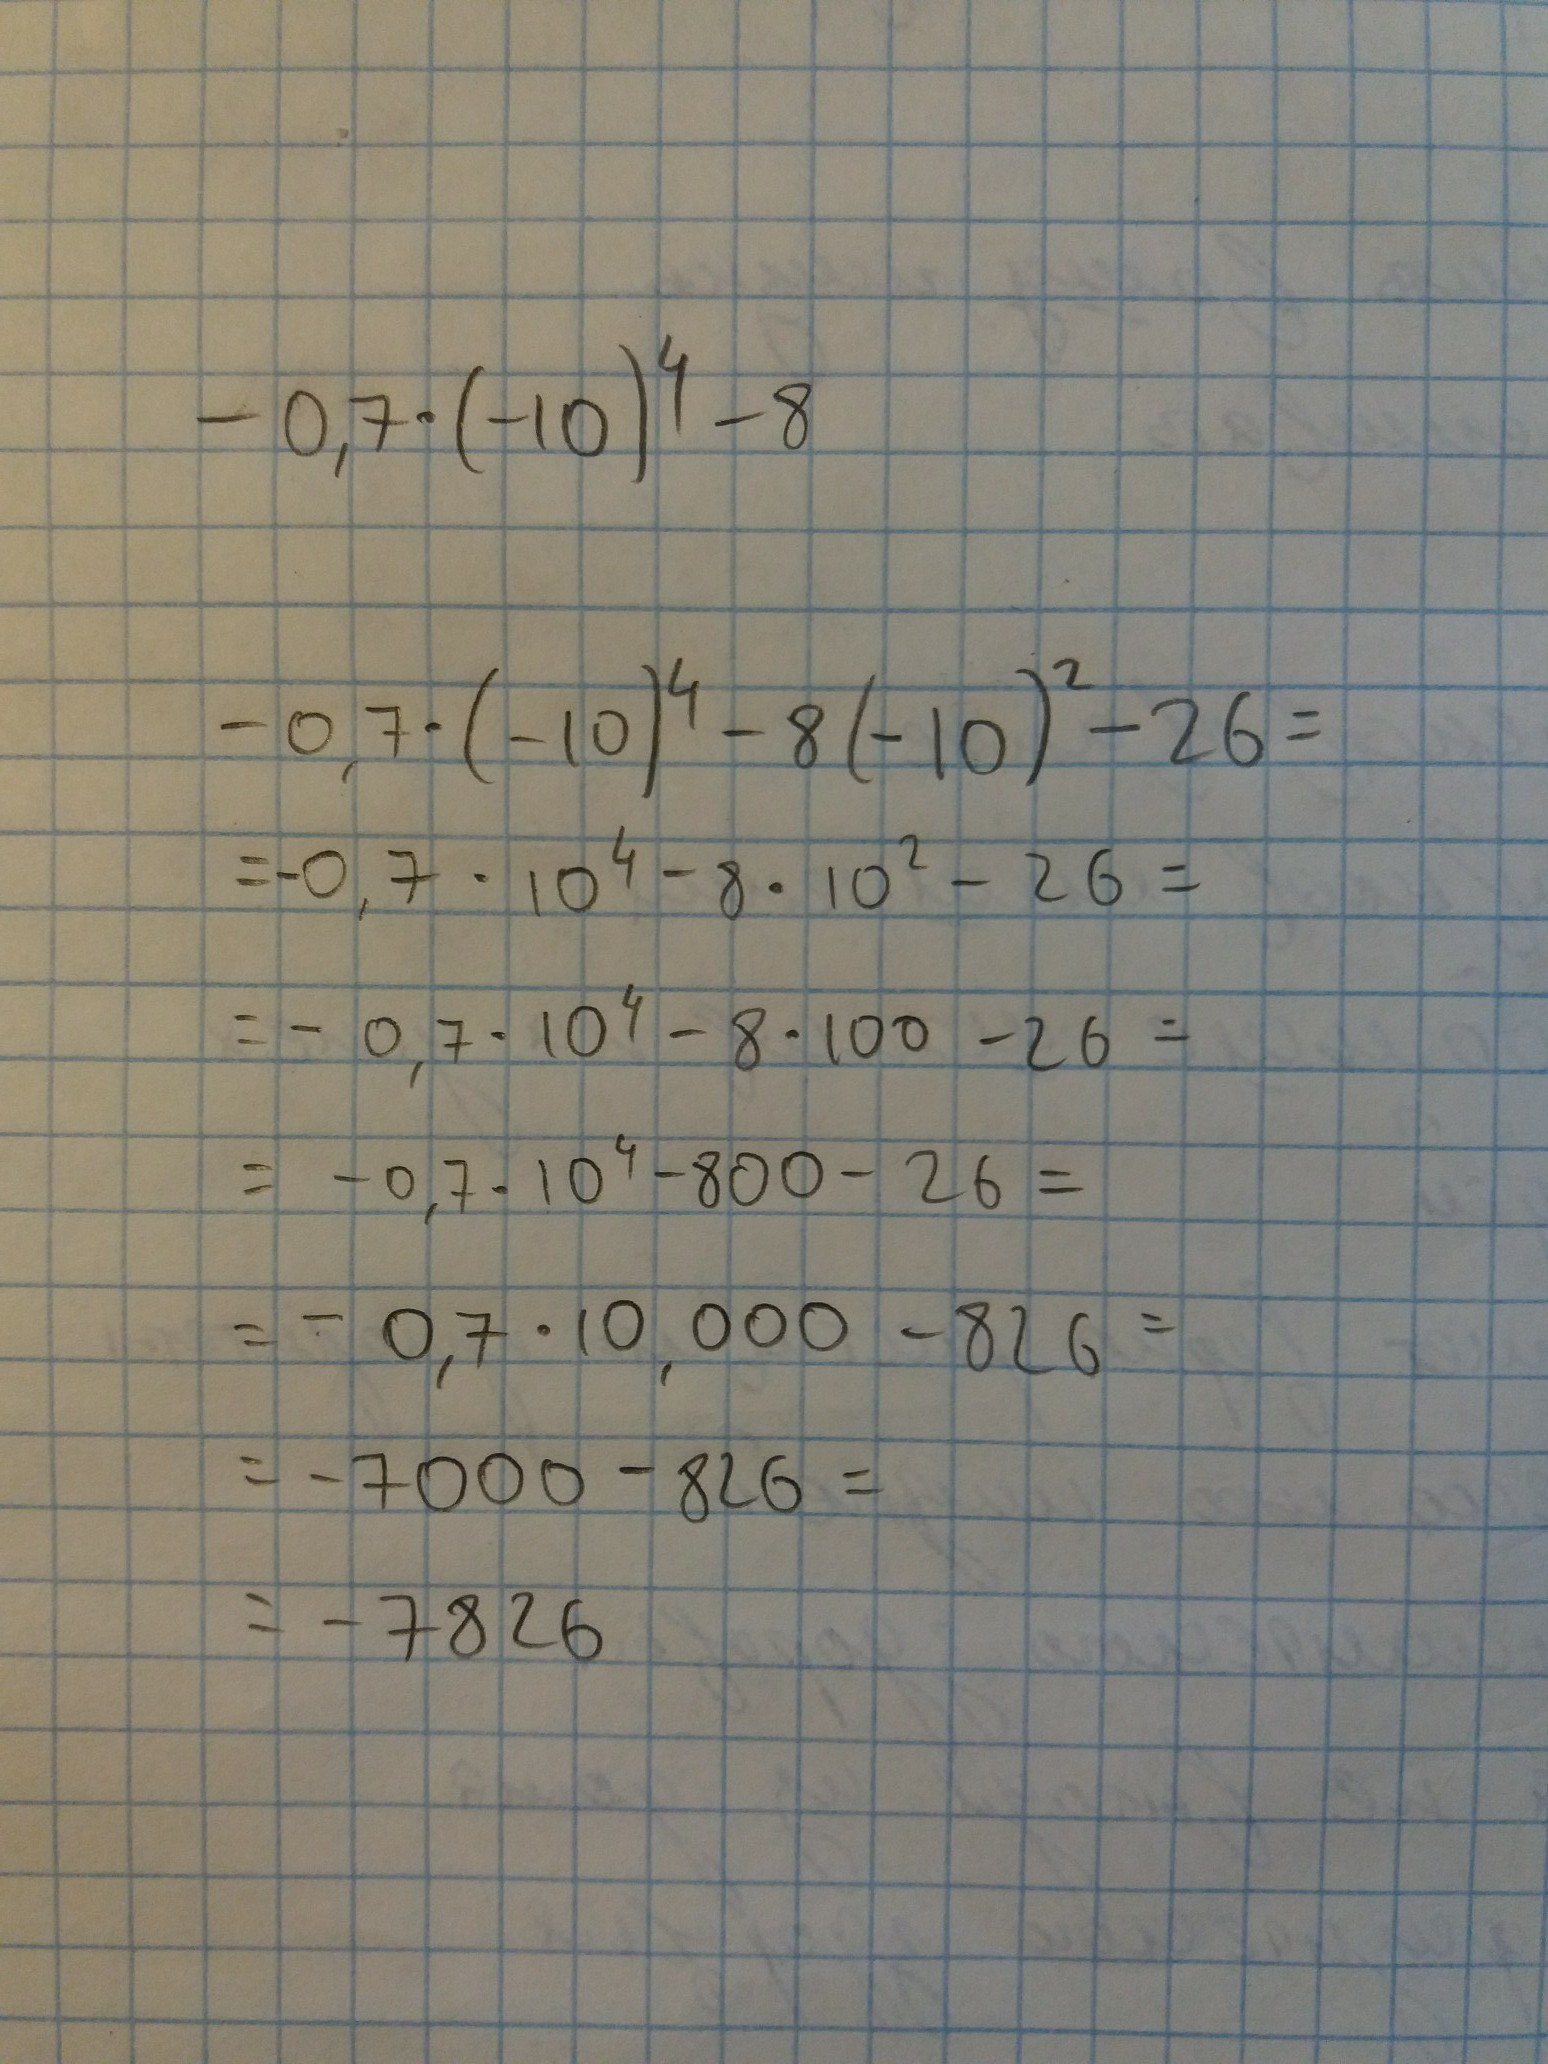 -0,7·(-10)⁴-8
-0,7·(-10)⁴-8(-10)²-26=
=-0,7·10⁴-8·10²-26=
=-0,7·10⁴-8·100-26=
=-0,7·10⁴-800-26=
=-0,7·10,000-826=
=-7000-826=
=-7826